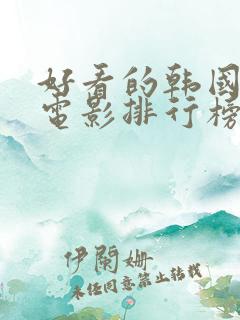 好看的韩国
电影排行榜
伊阑姗
未经同意禁止转载